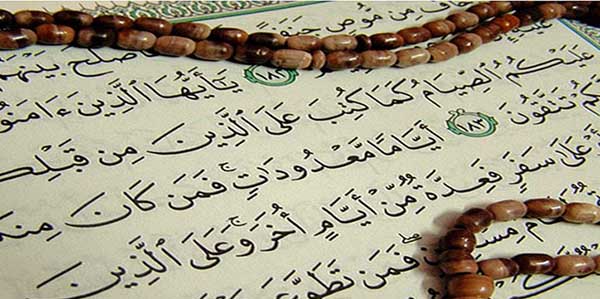 مِن مُّوصٍ جَنَفًا
صْلَحَ بَيْنَهُمْ
١٨٢ يَٰٓأَيُّهَا ٱلَّذِينَ ءَامَنُوا
عَلَيْكُمُ ٱلصِّيَامُ كَمَا كُتِبَ عَلَى ٱلَّذِينَ مِن قَبْلِكُ
كُمْ تَتَّقُونَ ١٨٣ أَيَّامًا مَّعْدُودَٰتٍ ۚ فَمَن كَانَ مِنكُ
عَلَىٰ سَفَرٍ فَعِدَّةٌ مِّنْ أَيَّامٍ أُخَرَ ۚ وَعَلَى ٱلَّذِينَ
فَمَن تَطَوَّعَ